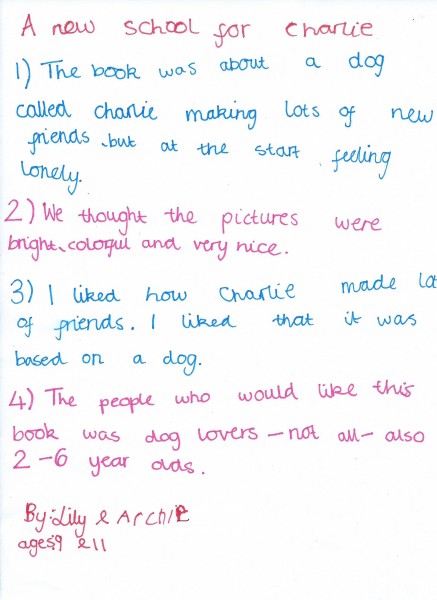 A new school for charlie
1) The book was about a dog
called charlie making lots of new
friends, but at the start, feeling
lonely.
2) We thought the pictures were
bright, coloful and very nice.
3) I liked how Charlie made lot
of friends. I liked that it was
based on a dog.
4) The people who would like this
book was dog lovers - not all - also
2-6 year olds.
By: Lily & Archie
ages: 9 & 11